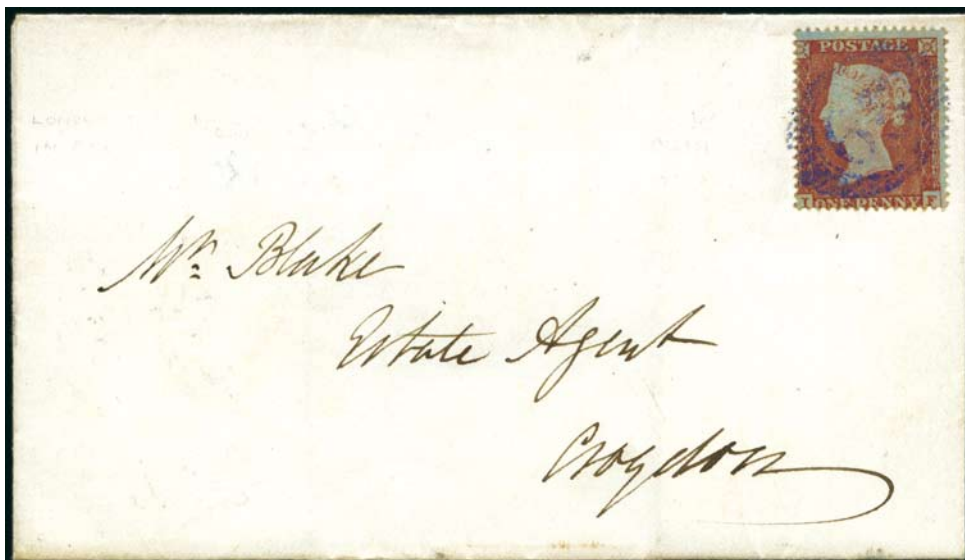 POSTAGE
I ONE PENNY F
Mr. Blake
Estate Agent
Croydon